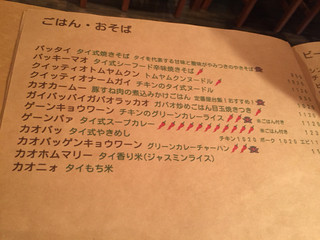 ごはん・おそば
パッタイ タイ式焼きそば タイを代表する甘味と酸味がやみつきのやきそば
パッキーマオ タイ式シーフード辛味焼きそば
クイッティオトムヤムクン トムヤムクンヌードル
クイッティオナームガイ チキンのタイ式ヌードル
カオカームー 豚すね肉の煮込みかけごはん 定番屋台飯!おすすめ!
ガイパッバイガパオラッカオ ガパオ炒めごはん目玉焼きつき
ゲーンキョウワーン チキンのグリーンカレーライス ※ごはん付き
ゲーンパァ タイ式スープカレー ※ごはん付き
カオパッ タイ式やきめし チキン1025 ポーク 1025 エビ11
カオパッゲーンキョウワーン グリーンカレーチャーハン
カオホムマリー タイ香り米(ジャスミンライス)
カオニォ タイもち米
ビー